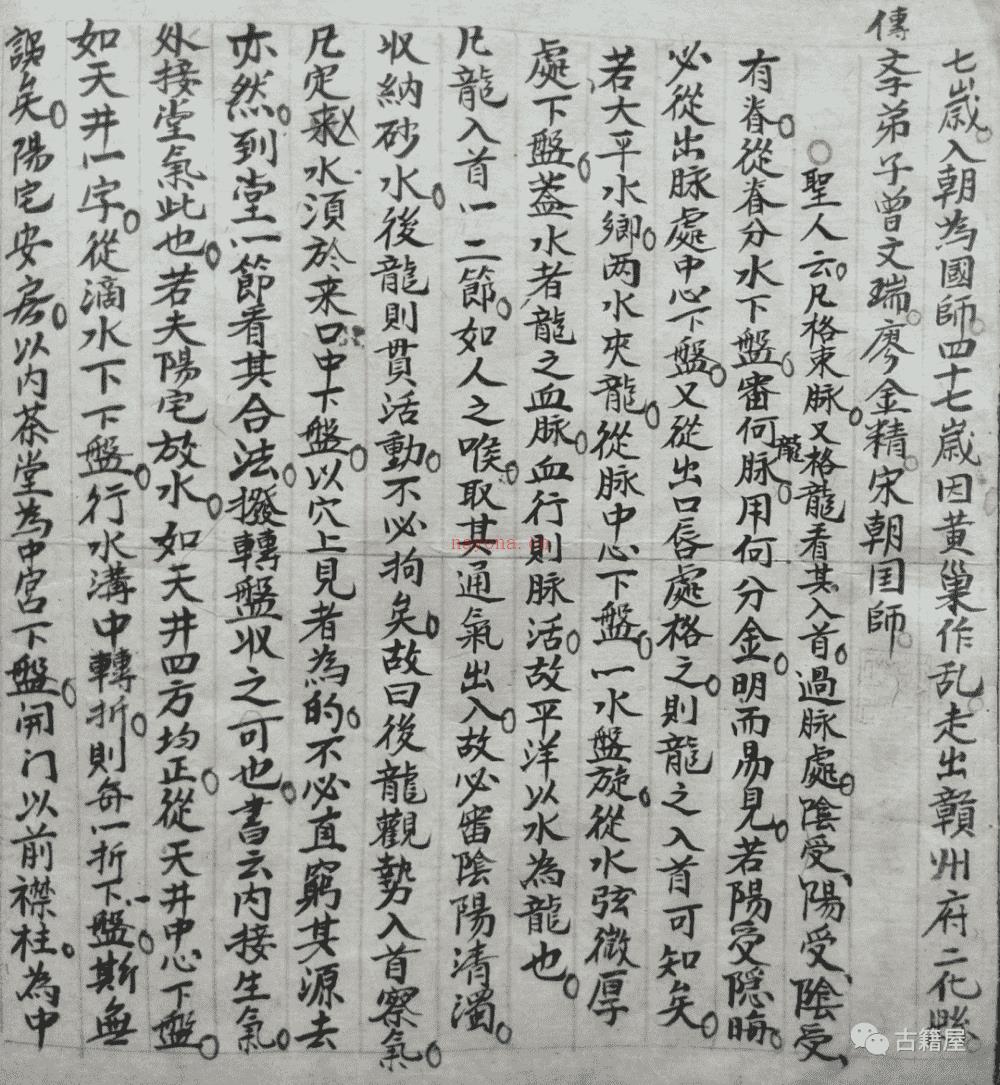 七歲入朝為國師四十七歲因黃巢作乱走出贛州府二化縣
傳文弟子曾文瑞廖金精宋朝囯師
聖人云凡格束脉又格龍看其入首過脉處陰受陽受陰受
有脊從脊分水下盤審何脉龍用何分金明而易見若陽受隱晦
必從出脉處中心下盤又從出口唇處格之則龍之入首可知矣
若大平水鄉两水夾龍從脉中心下盤一水盤旋從水弦微厚
處下盤蓋水者龍之血脉血行則脉活故平洋以水為龍也
凡龍入首一二節如人之喉取其通氣出入故必審陰陽清濁
収納砂水後龍則貫活動不必拘矣故曰後龍觀勢入首察氣
凡定來水須於来口中下盤以穴上見者為的不必直窮其源去
亦然到堂一節看其合法撥轉盤収之可也書云内接生氣
外接堂氣此也若夫陽宅放水如天井四方均正從天井中心下盤
如天井一字從滴水下下盤行水溝中轉折則每一折下盤斯無
誤矣陽宅安房以内茶堂為中宮下盤開门以前襟柱為中
nayona.cn
古籍屋